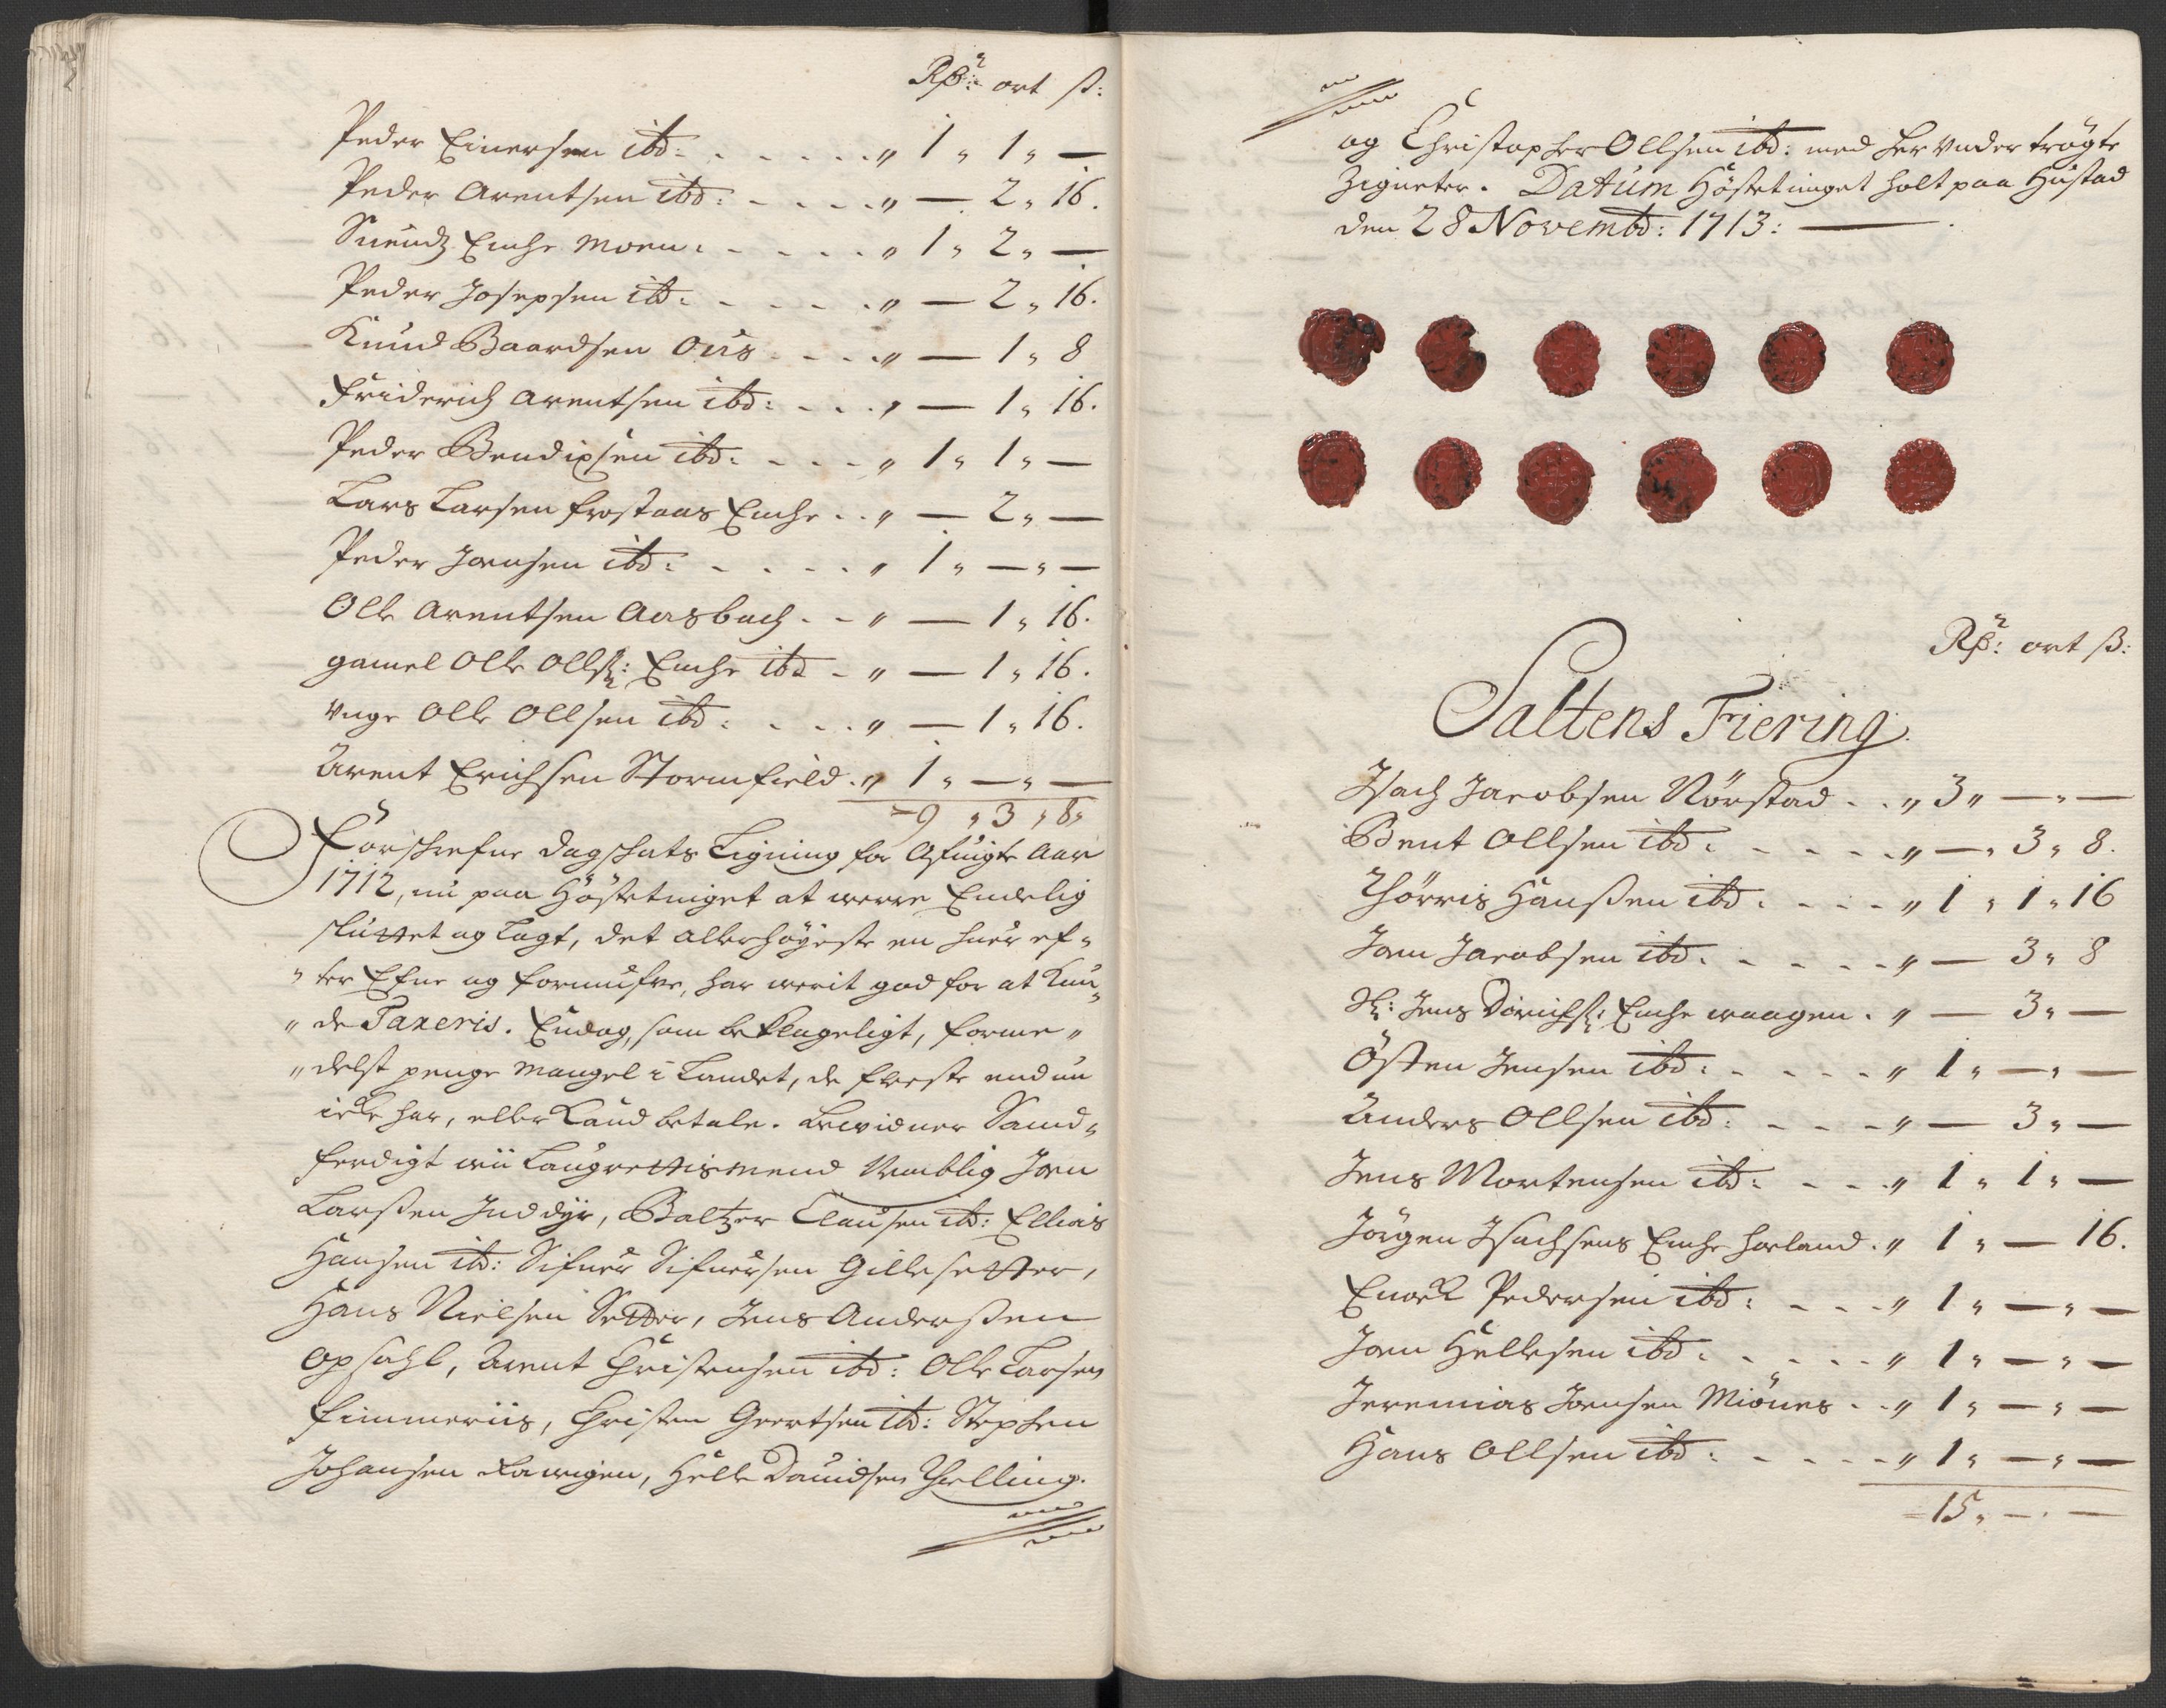 Rß: ort ß:
Peder Einersen ibd: . . . . . . „ 1 „ 1 „ —
Peder Arentsen ibd: - - - - „ — 2 „ 16.
Suendz Enche Moen: - - - - „ 1 „ 2 „ —
Peder Josepsen ibd: - - - - „ — 2 „ 16.
Knud Baardsen Ous - - - „ — 1 „ 8
Friderich Arentsen ibd: - - - „ — 1 „ 16.
Peder Bendixsen ibd: - - - „ 1 „ 1 „ —
Lars Larsen Frostaas Enche - - „ — 2 „ —
Peder Joensen ibd: - - - - „ 1 „ — „ —
Olle Arentsen Aasbach - - „ — 1 „ 16.
gamel Olle Ollß: Enche ibd - „ — 1 „ 16.
Vnge Olle Ollsen ibd: - - - „ — 1 „ 16.
Arent Erichsen Stormfield . „ 1 „ — „ —
= 9 „ 3 „ 8 „
Forschrefne Dagschats Ligning for Afvigte Aar
1712, nu paa Höstetinget at werre Endelig
sluttet og Lagt, det allerhöyeste en huer ef„
„ter Efne og formufve, har werit god for at kun„
„de Taxeris. Endog, som beklageligt, forme„
„delst penge Mangel i Landet, de fleeste end nu
icke har, eller kand betale. Bewidner Sand„
ferdigt wii Laugrettismend Nemblig Joen
Larßen Inddyr, Baltzer Clausen ibd: Ellias
Hansen ibd: Sifuer Sifuersen Gillesetter,
Hans Nielsen Setter, Jens Anderßen
Opsahl, Arent Christensen ibd: Olle Larsen
Fimmeriis, Christen Geertsen ibd: Stephen
Johansen , Helle Dauidsen Thelling.
og Christopher Ollsen ibd: med her under trögte
Zigneter. Datum Höstetinget holt paa Hustad
den 28 Novembd: 1713: —
Rß: ort ß:
Saltens Fiering
Isach Jacobsen Nörstad . . „ 3 „ — „ —
Bent Ollsen ibd: - - - - - „ — „ 3 „ 8.
Thörris Hanßen ibd: - - - - „ 1 „ 1 „ 16
Joen Jacobsen ibd: - - - - - „ — 3 „ 8
Sl: Jens Dirichß: Enche waagen . „ — 3 „ —
Östen Jensen ibd: - - - - - „ 1 „ — „ —
Anders Ollsen ibd: - - - - „ — 3 „ —
Jens Mortensen ibd: - - - „ 1 „ 1 „ —
Jörgen Isachsens Enche Horland . „ 1 „ — 16.
Enoch Pedersen ibd: - - - „ 1 „ — „ —
Joen Hellesen ibd: - - - - - „ 1 „ — „ —
Jeremias Joensen Miönes - - „ 1 „ — „ —
Hans Ollsen ibd: - - - - - „ 1 „ — „ —
= 15 „ — . —